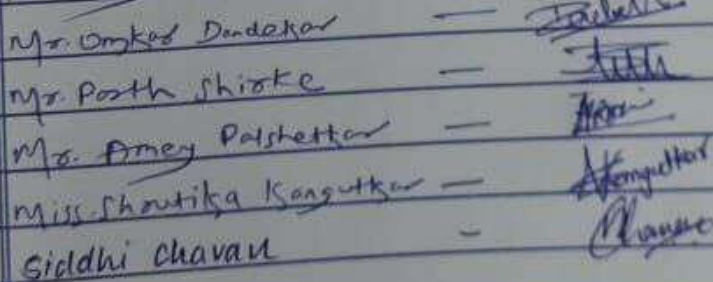 Mr. Omkar Dandekar —
Mr. Parth Shirke —
Mr. Amey Palshetkar —
Miss. Shrutika Kangutkar — Skangutkar
Siddhi Chavan - Chavan